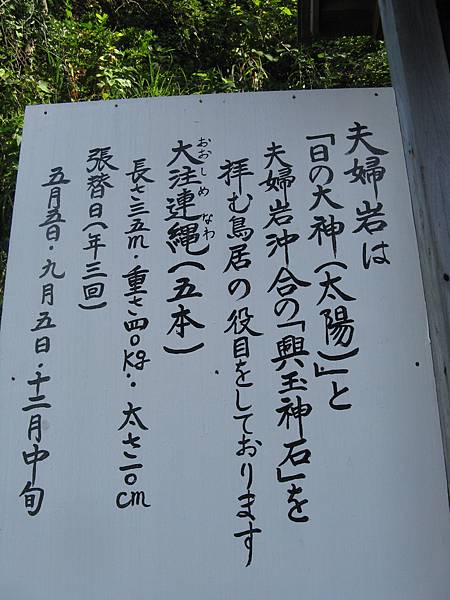 夫婦岩は
「日の大神(太陽)」と
夫婦岩沖合の「興玉神石」を
拝む鳥居の役目をしております
大注連縄(五本)
おおしめなわ
長さ三五m・重さ四〇kg・太さ一〇cm
張替日(年三回)
五月五日・九月五日・十二月中旬